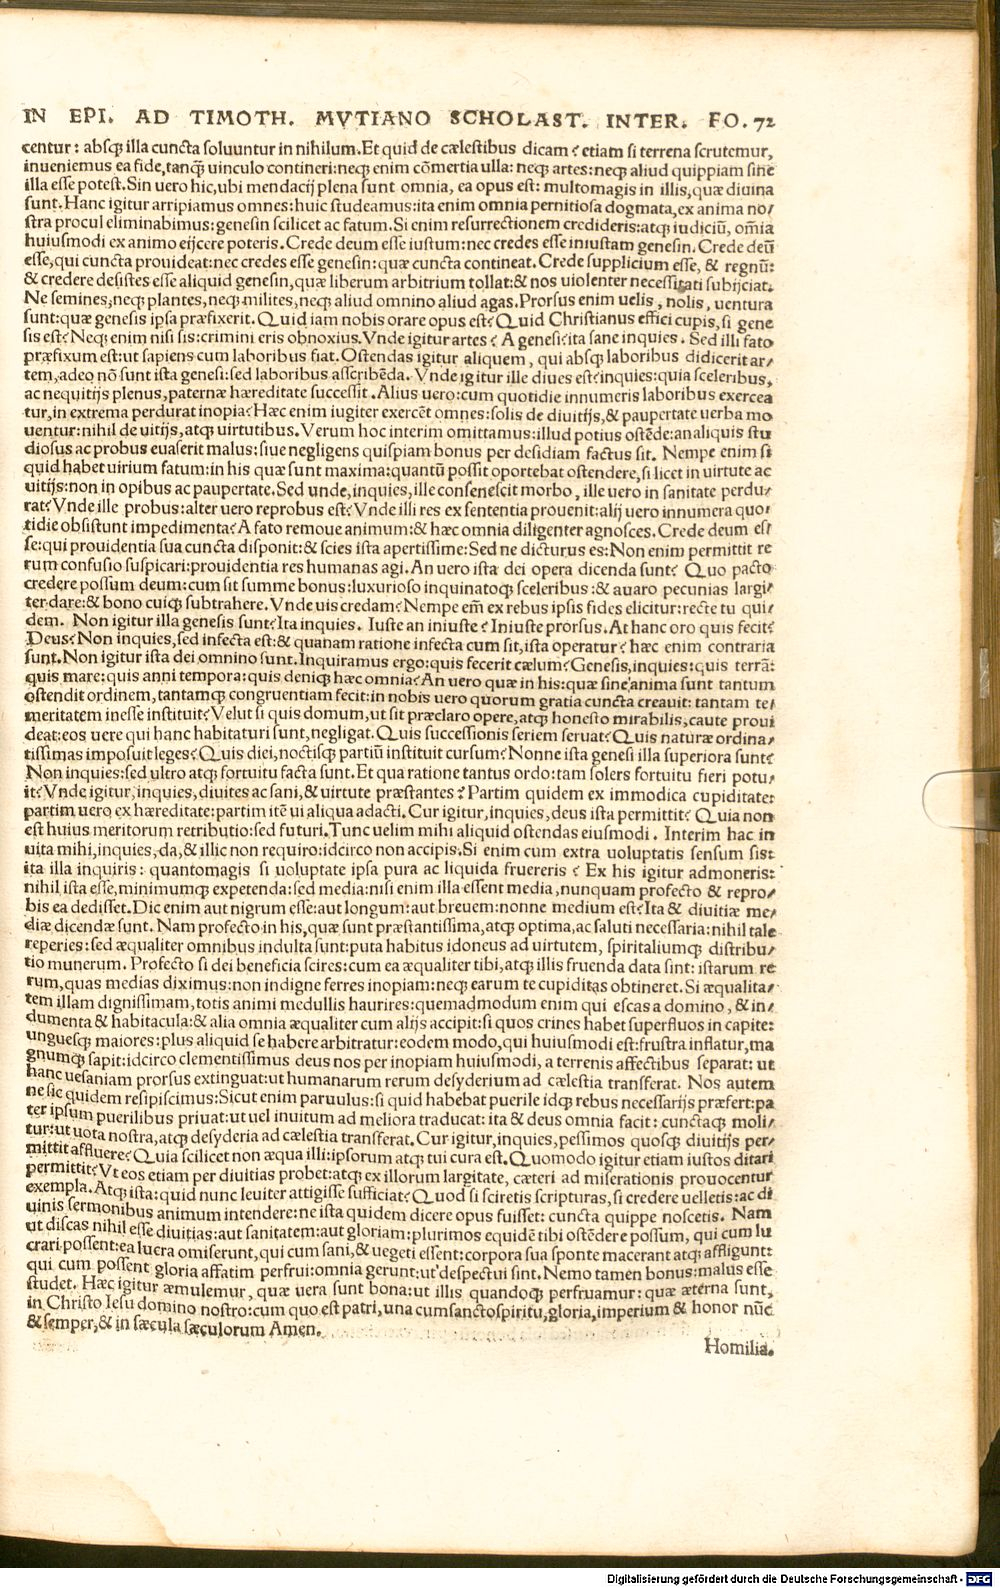 IN EPI. AD TIMOTH. MVTIANO SCHOLAST. INTER. FO. 72
centur: absq; illa cuncta soluuntur in nihilum. Et quid de cælestibus dicam? etiam si terrena scrutemur,
inueniemus ea fide, tanq̃ uinculo contineri: neq; enim cõmertia ulla: neq; artes: neq; aliud quippiam sine
illa esse potest. Sin uero hic, ubi mendacij plena sunt omnia, ea opus est: multomagis in illis, quæ diuina
sunt. Hanc igitur arripiamus omnes: huic studeamus: ita enim omnia pernitiosa dogmata, ex anima no/
stra procul eliminabimus: genesin scilicet ac fatum. Si enim resurrectionem credideris: atq; iudiciũ, om̃ia
huiusmodi ex animo eijcere poteris. Crede deum esse iustum: nec credes esse iniustam genesin. Crede deũ
esse, qui cuncta prouideat: nec credes esse genesin: quæ cuncta contineat. Crede supplicium esse, & regnũ:
& credere desistes esse aliquid genesin, quæ liberum arbitrium tollat: & nos uiolenter necessitati subijciat.
Ne semines, neq; plantes, neq; milites, neq; aliud omnino aliud agas. Prorsus enim uelis, nolis, uentura
sunt: quæ genesis ipsa præfixerit. Quid iam nobis orare opus est? Quid Christianus effici cupis, si gene
sis est? Neq; enim nisi sis: crimini eris obnoxius. Vnde igitur artes? A genesi: ita sane inquies. Sed illi fato
præfixum est: ut sapiens cum laboribus fiat. Ostendas igitur aliquem, qui absq; laboribus didicerit ar/
tem, adeo nõ sunt ista genesi: sed laboribus asscribẽda. Vnde igitur ille diues est? inquies: quia sceleribus,
ac nequitijs plenus, paternæ hæreditate successit. Alius uero: cum quotidie innumeris laboribus exercea
tur, in extrema perdurat inopia? Hæc enim iugiter exercẽt omnes: solis de diuitijs, & paupertate uerba mo
uentur: nihil de uitijs, atq; uirtutibus. Verum hoc interim omittamus: illud potius ostẽde: an aliquis stu
diosus ac probus euaserit malus: siue negligens quispiam bonus per desidiam factus sit. Nempe enim si
quid habet uirium fatum: in his quæ sunt maxima: quantũ possit oportebat ostendere, si licet in uirtute ac
uitijs: non in opibus ac paupertate. Sed unde, inquies, ille consenescit morbo, ille uero in sanitate perdu/
rat? Vnde ille probus: alter uero reprobus est? Vnde illi res ex sententia prouenit: alij uero innumera quo/
tidie obsistunt impedimenta? A fato remoue animum: & hæc omnia diligenter agnosces. Crede deum es/
se: qui prouidentia sua cuncta disponit: & scies ista apertissime: Sed ne dicturus es: Non enim permittit re
rum confusio suspicari: prouidentia res humanas agi. An uero ista dei opera dicenda sunt? Quo pacto
credere possum deum: cum sit summe bonus: luxurioso inquinatoq; sceleribus: & auaro pecunias largi/
ter dare: & bono cuiq; subtrahere. Vnde uis credam? Nempe em̃ ex rebus ipsis fides elicitur: recte tu qui/
dem. Non igitur illa genesis sunt? Ita inquies. Iuste an iniuste? Iniuste prorsus. At hanc oro quis fecit?
Deus? Non inquies, sed infecta est: & quanam ratione infecta cum sit, ista operatur? hæc enim contraria
sunt. Non igitur ista dei omnino sunt. Inquiramus ergo: quis fecerit cælum? Genesis, inquies: quis terrã:
quis mare: quis anni tempora: quis deniq; hæc omnia? An uero quæ in his: quæ sine anima sunt tantum
ostendit ordinem, tantamq; congruentiam fecit: in nobis uero quorum gratia cuncta creauit: tantam te/
meritatem inesse instituit? Velut si quis domum, ut sit præclaro opere, atq; honesto mirabilis, caute proui
deat: eos uere qui hanc habitaturi sunt, negligat. Quis successionis seriem seruat? Quis naturæ ordina/
tissimas imposuit leges? Quis diei, noctisq; partiũ instituit cursum? Nonne ista genesi illa superiora sunt?
Non inquies: sed ultro atq; fortuitu facta sunt. Et qua ratione tantus ordo: tam solers fortuitu fieri potu/
it? Vnde igitur, inquies, diuites ac sani, & uirtute præstantes? Partim quidem ex immodica cupiditate:
partim uero ex hæreditate: partim itẽ ui aliqua adacti. Cur igitur, inquies, deus ista permittit? Quia non
est huius meritorum retributio: sed futuri. Tunc uelim mihi aliquid ostendas eiusmodi. Interim hac in
uita mihi, inquies, da, & illic non requiro: idcirco non accipis. Si enim cum extra uoluptatis sensum sis:
ita illa inquiris: quantomagis si uoluptate ipsa pura ac liquida fruereris? Ex his igitur admoneris:
nihil ista esse, minimumq; expetenda: sed media: nisi enim illa essent media, nunquam profecto & repro/
bis ea dedisset. Dic enim aut nigrum esse: aut longum: aut breuem: nonne medium est? Ita & diuitiæ me/
diæ dicendæ sunt. Nam profecto in his, quæ sunt præstantissima, atq; optima, ac saluti necessaria: nihil tale
reperies: sed æqualiter omnibus indulta sunt: puta habitus idoneus ad uirtutem, spiritaliumq; distribu/
tio munerum. Profecto si dei beneficia scires: cum ea æqualiter tibi, atq; illis fruenda data sint: istarum re
rum, quas medias diximus: non indigne ferres inopiam: neq; earum te cupiditas obtineret. Si æqualita/
tem illam dignissimam, totis animi medullis haurires: quemadmodum enim qui escas a domino, & in/
dumenta & habitacula: & alia omnia æqualiter cum alijs accipit: si quos crines habet superfluos in capite:
unguesq; maiores: plus aliquid se habere arbitratur: eodem modo, qui huiusmodi est: frustra inflatur, ma
gnumq; sapit: idcirco clementissimus deus nos per inopiam huiusmodi, a terrenis affectibus separat: ut
hanc uesaniam prorsus extinguat: ut humanarum rerum desyderium ad cælestia transferat. Nos autem
ne sic quidem resipiscimus: Sicut enim paruulus: si quid habebat puerile idq; rebus necessarijs præfert: pa
ter ipsum puerilibus priuat: ut uel inuitum ad meliora traducat: ita & deus omnia facit: cunctaq; moli/
tur: ut uota nostra, atq; desyderia ad cælestia transferat. Cur igitur, inquies, pessimos quosq; diuitijs per/
mittit affluere? Quia scilicet non æqua illi: ipsorum atq; tui cura est. Quomodo igitur etiam iustos ditari
permittit? Vt eos etiam per diuitias probet: atq; ex illorum largitate, cæteri ad miserationis prouocentur
exempla. Atq; ista: quid nunc leuiter attigisse sufficiat? Quod si sciretis scripturas, si credere uelletis: ac di
uinis sermonibus animum intendere: ne ista quidem dicere opus fuisset: cuncta quippe noscetis. Nam
ut discas nihil esse diuitias: aut sanitatem: aut gloriam: plurimos equidẽ tibi ostẽdere possum, qui cum lu
crari possent: ea luera omiserunt, qui cum sani, & uegeti essent: corpora sua sponte macerant atq; affligunt:
qui cum possent gloria affatim perfrui: omnia gerunt: ut despectui sint. Nemo tamen bonus: malus esse
studet. Hæc igitur æmulemur, quæ uera sunt bona: ut illis quandoq; perfruamur: quæ æterna sunt,
in Christo Iesu domino nostro: cum quo est patri, una cum sancto spiritu, gloria, imperium & honor nũc
& semper, & in sæcula sæculorum Amen.
Homilia.
Digitalisierung gefördert durch die Deutsche Forschungsgemeinschaft - DFG